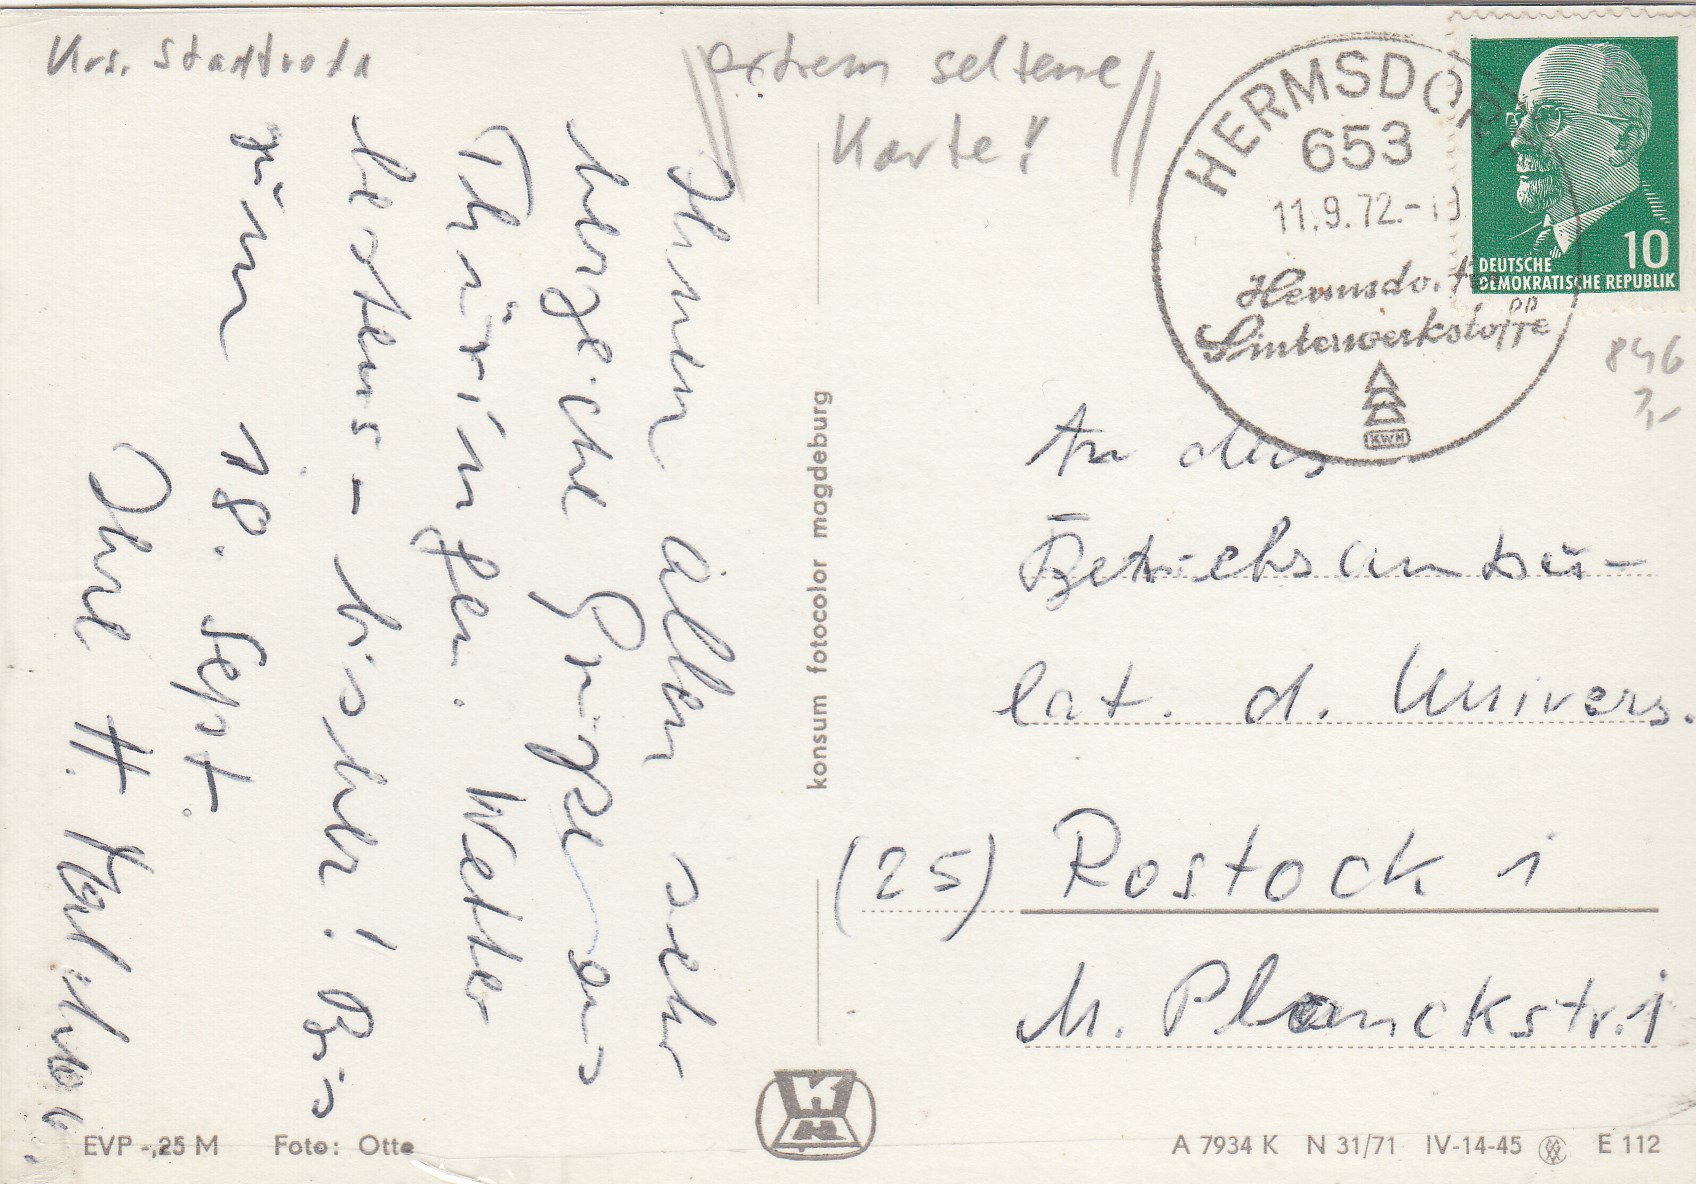 Krs. Stadtroda
extrem seltene
Karte!
HERMSDORF
653
11.9.72.-19
Hermsdorfer
Sinterwerkstoffe
KWH
10
DEUTSCHE
DEMOKRATISCHE REPUBLIK
846
7,-
Ihnen allen sehr
herzliche Grüße aus
Thüringen. Wetter
bestens - bisher! Bis
zum 18. Sept.
Ihre H.
konsum fotocolor magdeburg
An das
Betriebsambu-
lat. d. Univers.
(25) Rostock 1
M. Planckstr. 1
EVP -,25 M Foto: Otte
A 7934 K N 31/71 IV-14-45 E 112